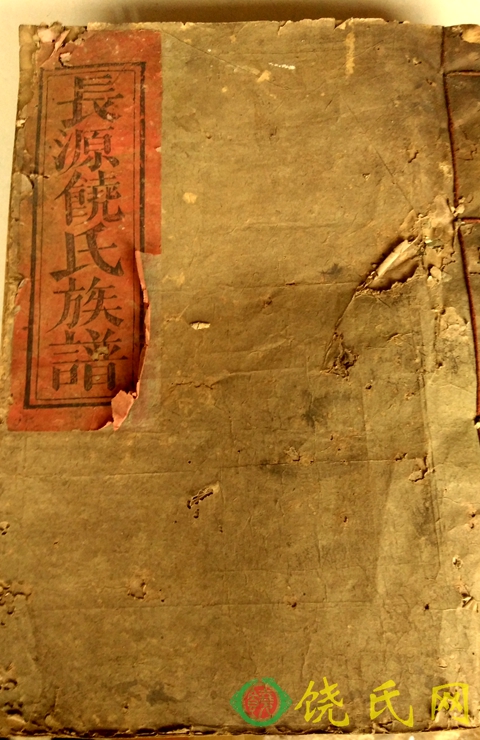 長源饒氏族譜
饶氏网